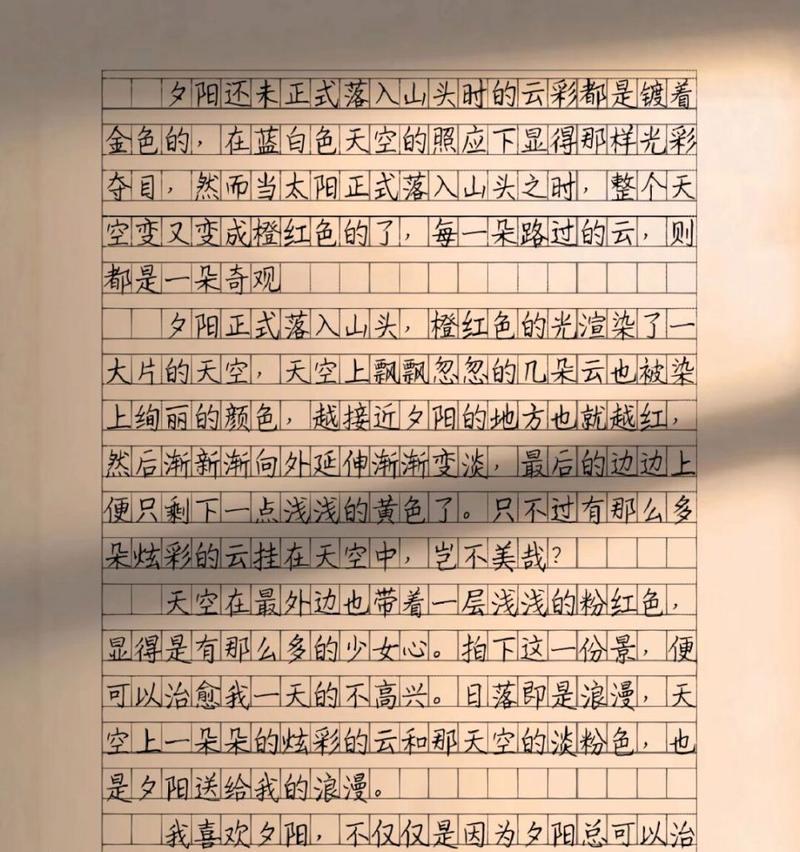 夕阳还未正式落入山头时的云彩都是镀着
金色的，在蓝白色天空的照应下显得那样光彩
夺目，然而当太阳正式落入山头之时，整个天
空变又变成橙红色的了，每一朵路过的云，则
都是一朵奇观
夕阳正式落入山头，橙红色的光渲染了一
大片的天空，天空上飘飘忽忽的几朵云也被染
上绚丽的颜色，越接近夕阳的地方也就越红，
然后渐新渐向外延伸渐渐变淡，最后的边边上
便只剩下一点浅浅的黄色了。只不过有那么多
朵炫彩的云挂在天空中，岂不美哉？
天空在最外边也带着一层浅浅的粉红色，
显得是有那么多的少女心。拍下这一份景，便
可以治愈我一天的不高兴。日落即是浪漫，天
空上一朵朵的炫彩的云和那天空的淡粉色，也
是夕阳送给我的浪漫。
我喜欢夕阳，不仅仅是因为夕阳总可以治